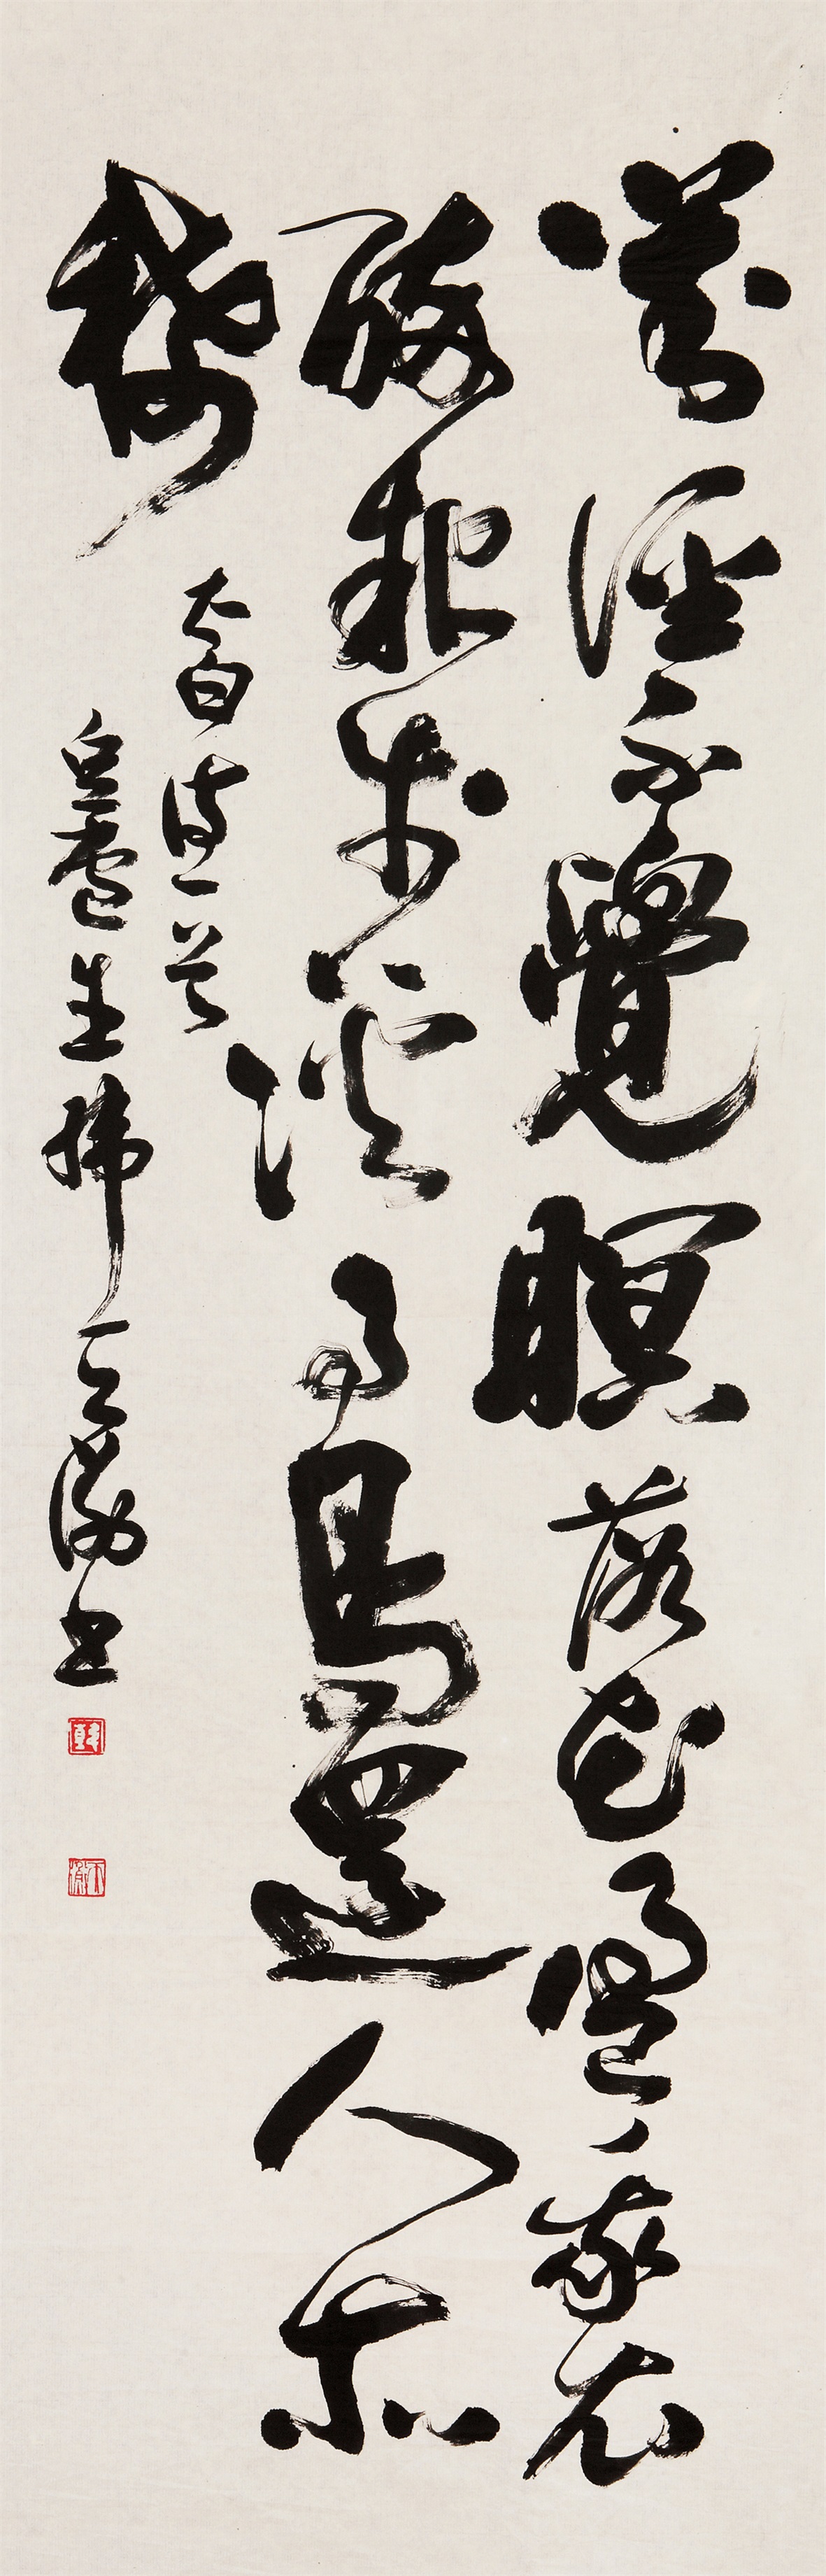 對酒不覺瞑落花盈我衣
醉起步溪月鳥還人亦
稀
太白詩一首
豆廬生韓天衡書